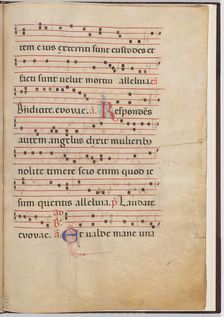 tem eius exterriti sunt custodes et
facti sunt velut mortui alleluia
Bndicite. evovae. a. Respondens
autem angelus dixit mulieribus
nolite timere scio enim quod ie
sum queritis alleluia. p̃ Laudate.
ad
evovae. a. Et valde mane una